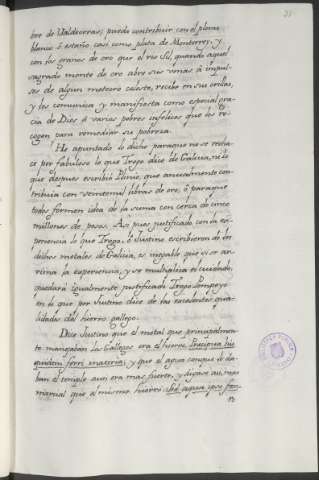 bre de Valdeorras; puede contribuir con el plomo
blanco ó estaño casi como plata de Monterrey, y
con los granos de oro que el rio Sil, quando aquel
sagrado monte de oro abre sus venas á impul-
sos de algun meteoro celeste, recibe en sus orillas,
y los comunica y manifiesta como especial gra-
cia de Dios á varios pobres infelices que los re-
cogen para remediar su pobreza.
He apuntado lo dicho paraque no se tenga
por fabuloso lo que Trogo dice de Galicia, ni lo
que despues escribió Plinio, que anualmente con-
tribuia con veintemil libras de oro, ó paraque
todos formen idea de la suma con cerca de cinco
millones de pesos. Asi pues justificado con la ex-
periencia lo que Trogo, ó Justino escribieron de los
dichos metales de Galicia, es innegable que si se ar-
rima la experiencia, y se multiplica el cuidado,
quedará igualmente justificado Trogo Pompeyo
en lo que por Justino dice de las excelentes qua-
lidades del hierro gallego.
Dice Justino que el metal que principalmen-
te manejaban los Gallegos era el hierro, Præcipua his
quidem ferri materia, y que el agua conque le da-
ban el temple aun era mas fuerte, y digase aun, mas
marcial que el mismo hierro: sed aqua ipso fer-
ro